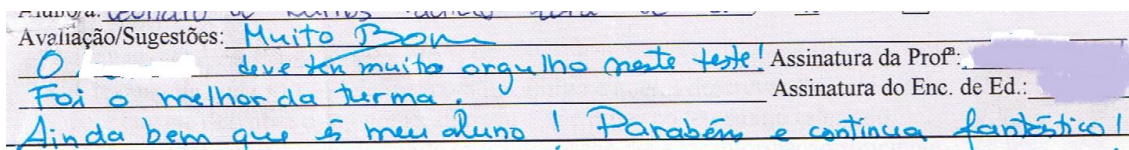 Aluno/a:
Avaliação/Sugestões: Muito Bom
O deve ter muito orgulho neste teste! Assinatura da Profª:
Foi o melhor da turma. Assinatura do Enc. de Ed.:
Ainda bem que és meu aluno! Parabéns e continua fantástico!